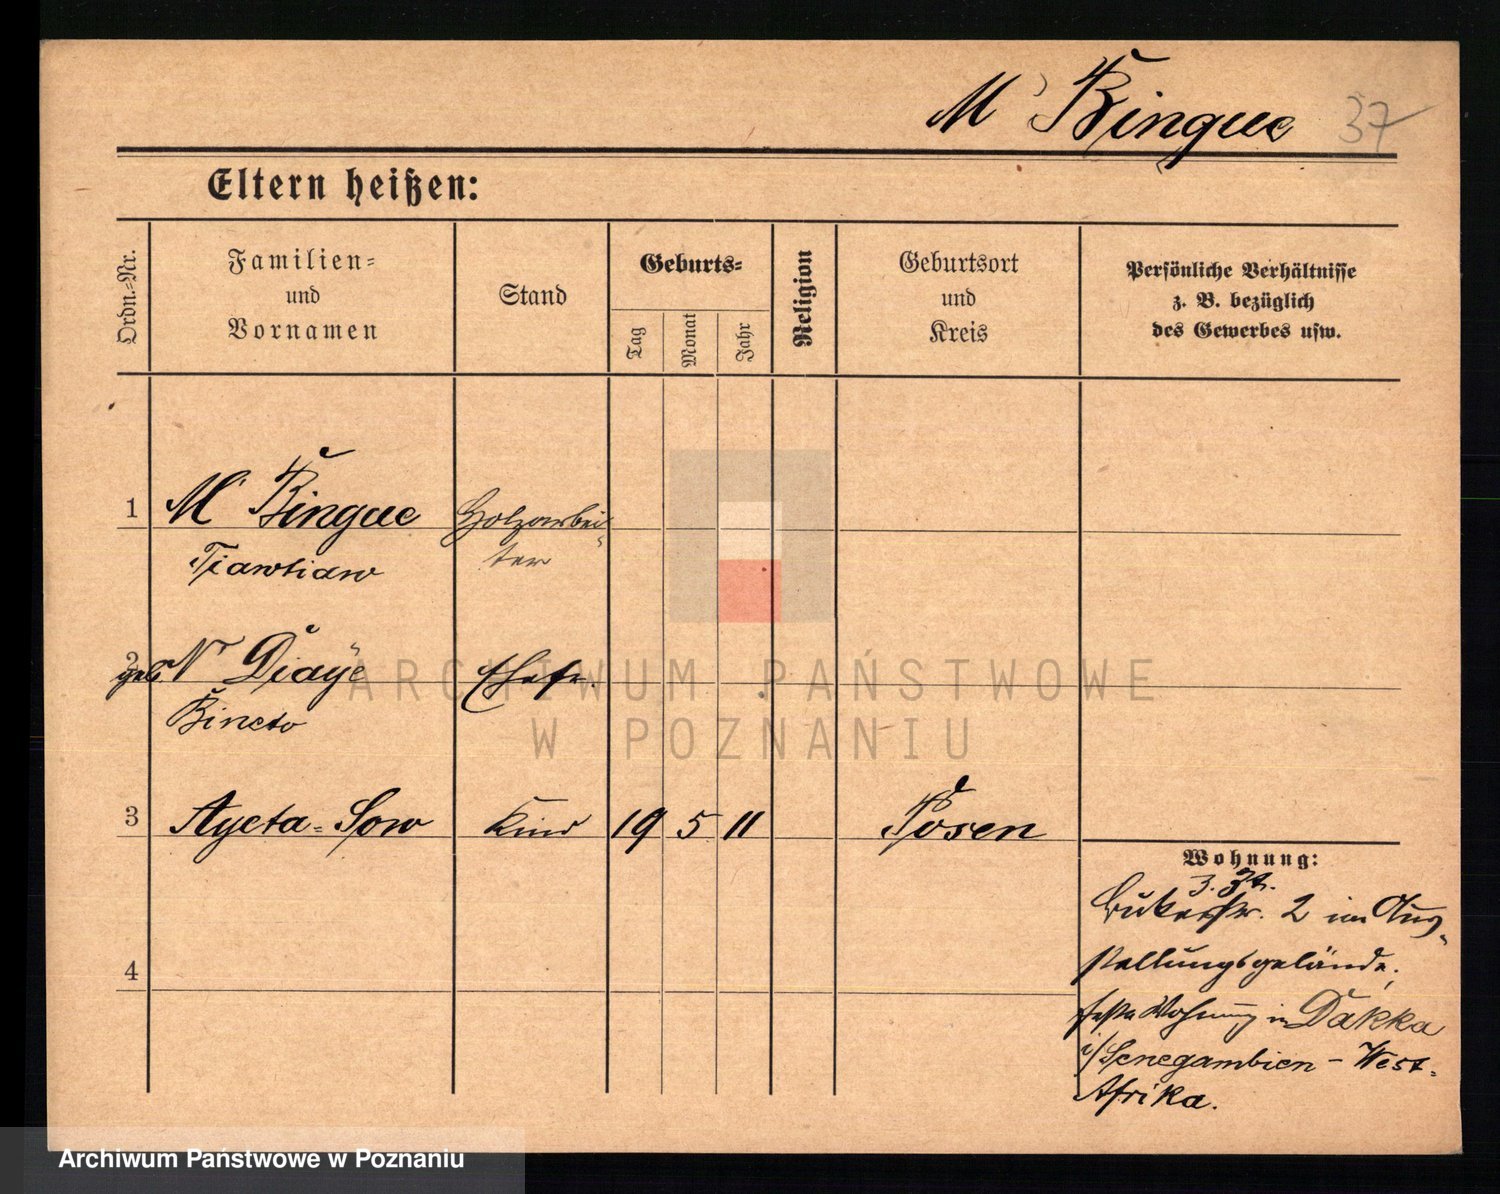 M' Bingue 37
Eltern heißen:
Ordn.-Nr.
Familien-
und
Vornamen
Stand
Geburts-
Tag
Monat
Jahr
Religion
Geburtsort
und
Kreis
Persönliche Verhältnisse
z. B. bezüglich
des Gewerbes usw.
1 M' Bingue Holzarbei-
Tiawtiaw ter
2 geb. N' Diaye Ehefr.
Bineto
3 Ayeta-Sow Kind 19 5 11 Posen
Wohnung:
z. Zt.
Bukerstr. 2 im Aus-
stellungsgelände,
feste Wohnung in Dakka
i/Senegambien - West-
Afrika.
4
ARCHIWUM PAŃSTWOWE
W POZNANIU
Archiwum Państwowe w Poznaniu